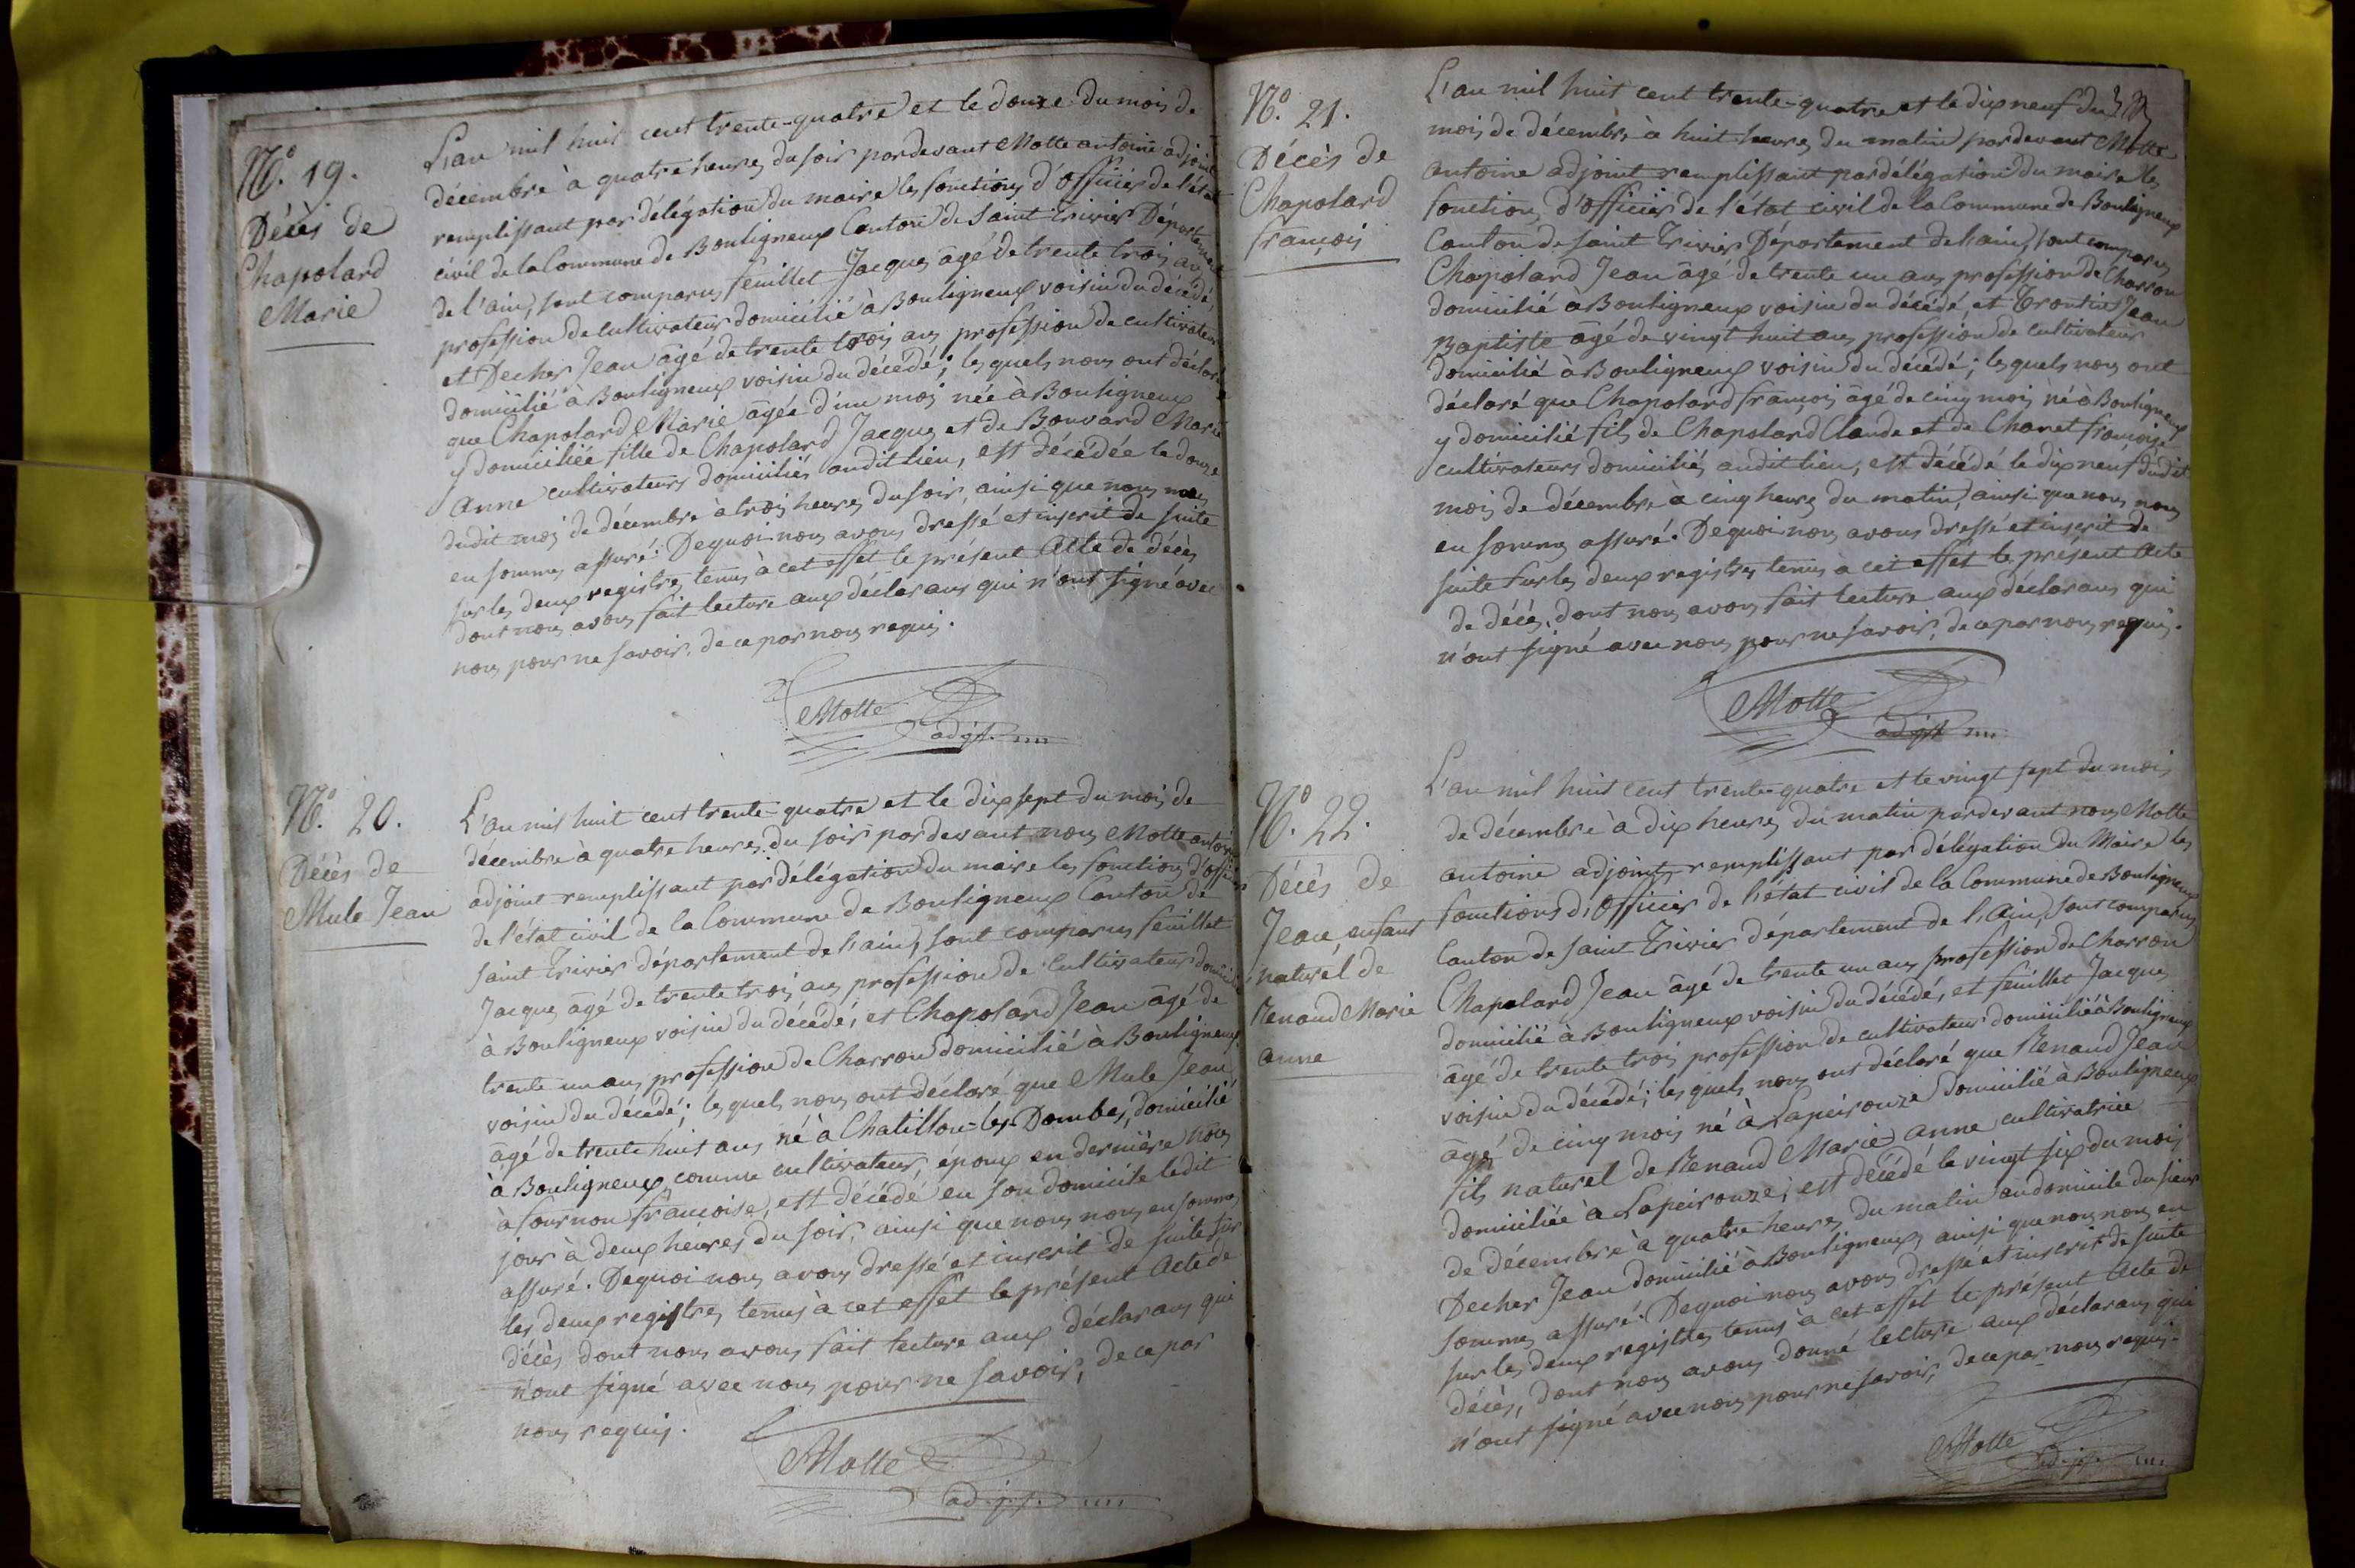 N.º 19.
Décès de
Chapolard
Marie
L'an mil huit cent trente-quatre et le douze du mois de
décembre à quatre heures du soir pardevant Motte antoine adjoint
remplissant par délégation du maire les fonctions d'Officier de l'état
civil de la Commune de Bouligneux Canton de Saint Trivier Département
de l'ain, sont comparus feuillet Jacques âgé de trente trois ans
profession de cultivateur domicilié à Bouligneux voisin du décédé,
et Decher Jean âgé de trente trois ans profession de cultivateur
domicilié à Bouligneux voisin du décédé; les quels nous ont déclaré
que Chapolard Marie âgée d'un mois née à Bouligneux
y domiciliée fille de Chapolard Jacques et de Bouvard Marie
Anne cultivateurs domiciliés audit lieu, est décédée le douze
dudit mois de décembre à trois heures du soir, ainsi que nous nous
en sommes assuré. Dequoi nous avons dressé et inscrit de suite
sur les deux registres tenus à cet effet le présent Acte de décès
dont nous avons fait lecture aux déclarans qui n'ont signé avec
nous pour ne savoir, de ce par nous requis.
Motte
adjt.
N.º 20.
Décès de
Mule Jean
L'an mil huit cent trente-quatre et le dix sept du mois de
décembre à quatre heures du soir pardevant nous Motte antoine
adjoint remplissant par délégation du maire les fonctions d'officier
de l'état civil de la Commune de Bouligneux Canton de
saint Trivier département de l'ain, sont comparus feuillet
Jacques âgé de trente trois ans profession de Cultivateur domicilié
à Bouligneux voisin du décédé; et Chapolard Jean âgé de
trente un ans profession de Charron domicilié à Bouligneux
voisin du décédé; les quels nous ont déclaré que Mule Jean
âgé de trente huit ans né à Chatillon-les-Dombes, domicilié
à Bouligneux comme cultivateur, époux en dernière nôces
à fournon françoise, est décédé en son domicile ledit
jour à deux heures du soir, ainsi que nous nous en sommes
assuré. Dequoi nous avons dressé et inscrit de suite sur
les deux registres tenus à cet effet le présent Acte de
décès dont nous avons fait lecture aux déclarans qui
n'ont signé avec nous pour ne savoir, de ce par
nous requis.
Motte
adjt.
N.º 21.
Décès de
Chapolard
françois
L'an mil huit cent trente-quatre et le dix neuf du
mois de décembre à huit heures du matin pardevant Motte
antoine adjoint remplissant par délégation du maire les
fonctions d'officier de l'état civil de la Commune de Bouligneux
Canton de saint Trivier Département de l'ain, sont comparus
Chapolard Jean âgé de trente un ans profession de Charron
domicilié à Bouligneux voisin du décédé, et Trontin Jean
Baptiste âgé de vingt huit ans profession de cultivateur
domicilié à Bouligneux voisin du décédé; les quels nous ont
déclaré que Chapolard françois âgé de cinq mois né à Bouligneux
y domicilié fils de Chapolard Claude et de Chanet françoise
cultivateurs domiciliés audit lieu, est décédé le dix neuf dudit
mois de décembre à cinq heures du matin, ainsi que nous nous
en sommes assuré. Dequoi nous avons dressé et inscrit de
suite sur les deux registres tenus à cet effet le présent Acte
de décès, dont nous avons fait lecture aux déclarans qui
n'ont signé avec nous pour ne savoir, de ce par nous requis.
Motte
adjt
N.º 22.
Décès de
Jean, enfant
naturel de
Renaud Marie
anne
L'an mil huit cent trente-quatre et le vingt sept du mois
de décembre à dix heures du matin pardevant nous Motte
antoine adjoint, remplissant par délégation du Maire les
fonctions d'Officier de l'état civil de la Commune de Bouligneux
Canton de saint Trivier département de l'Ain, sont comparus
Chapolard Jean âgé de trente un ans profession de Charron
domicilié à Bouligneux voisin du décédé, et feuillet Jacques
âgé de trente trois profession de cultivateur domicilié à Bouligneux
voisin du décédé; les quels nous ont déclaré que Renaud Jean
âgé de cinq mois né à Lapeirouze domicilié à Bouligneux
fils naturel de Renaud Marie-anne cultivatrice
domiciliée à Lapeirouze; est décédé le vingt six du mois
de décembre à quatre heures du matin au domicile du sieur
Decher Jean domicilié à Bouligneux, ainsi que nous nous en
sommes assuré. Dequoi nous avons dressé et inscrit de suite
sur les deux registres tenus à cet effet le présent Acte de
décès, dont nous avons donné lecture aux déclarans qui
n'ont signé avec nous pour ne savoir, de ce par nous requis.
Motte
adjt.